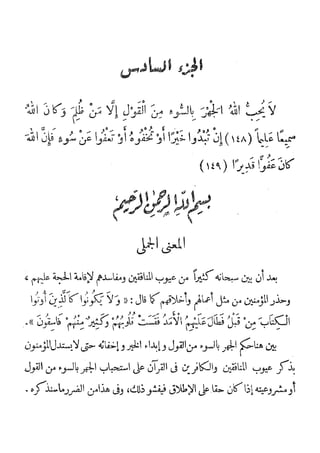 الجزء السادس
لَا يُحِبُّ اللهُ الْجَهْرَ بِالسُّوءِ مِنَ الْقَوْلِ إِلَّا مَنْ ظُلِمَ وَكَانَ اللهُ
سَمِيعًا عَلِيماً (١٤٨) إِنْ تُبْدُوا خَيْرًا أَوْ تُخْفُوهُ أَوْ تَعْفُوا عَنْ سُوءٍ فَإِنَّ اللهَ
كانَ عَفُوًّا قَدِيرًا (١٤٩)
بسم الله الرحمن الرحيم
المعنى الجملى
بعد أن بين سبحانه كثيراً من عيوب المنافقين ومفاسدهم لإقامة الحجة عليهم ،
وحذر المؤمنين من مثل أعمالهم وأخلاقهم كما قال : « وَلَا يَكُونُوا كَالَّذِينَ أُوتُوا
الْكِتَابَ مِنْ قَبْلُ فَطَالَ عَلَيْهِمُ الْأَمَدُ فَقَسَتْ قُلُوبُهُمْ وَكَثِيرٌ مِنْهُمْ فَاسِقُونَ » .
بين هنا حكم الجهر بالسوء من القول وإبداء الخير وإخفائه حتى لا يستدل المؤمنون
بذكر عيوب المنافقين والكافرين فى القرآن على استحباب الجهر بالسوء من القول
أو مشروعيته إذا كان حقا على الإطلاق فيفشو ذلك، وفى هذا من الضرر ما سنذكره .